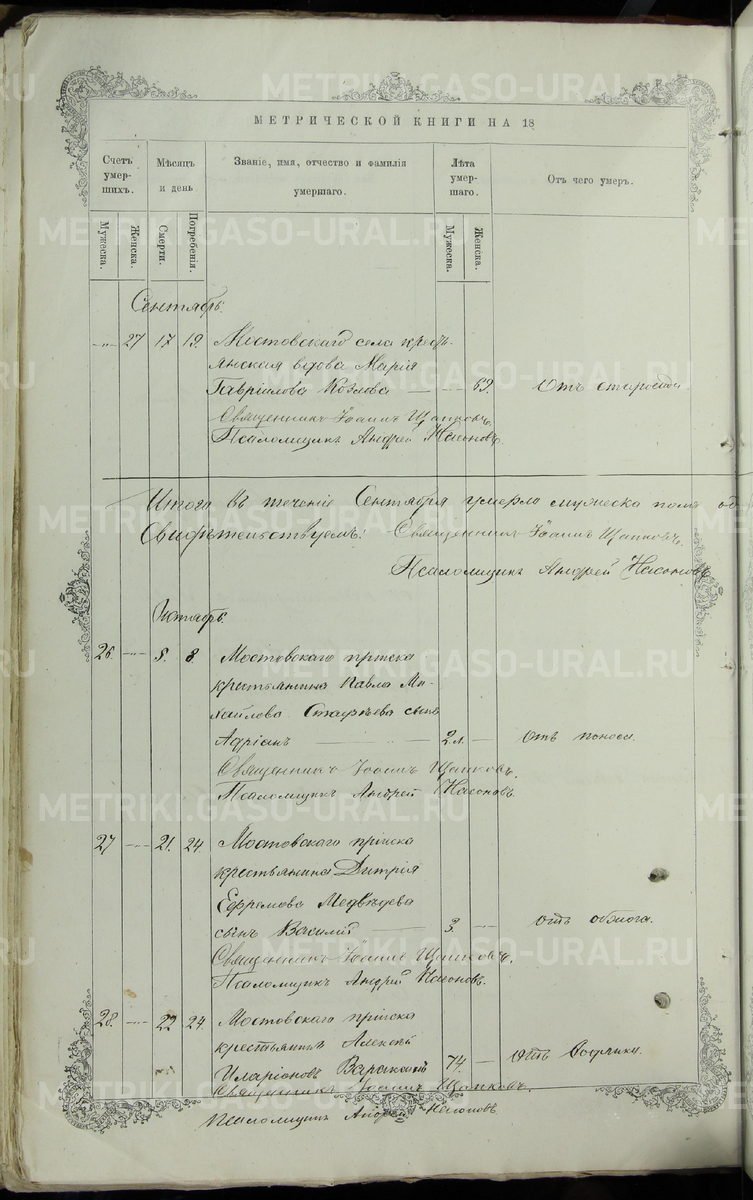 МЕТРИЧЕСКОЙ КНИГИ НА 18
Счетъ умер- шихъ.
Мѣсяцъ и день
Званіе, имя, отчество и фамилія умершаго.
Лѣта умер- шаго.
Отъ чего умеръ.
Мужеска. Женска. Смерти. Погребенія. Мужеска. Женска.
Сентябрь.
27 17 19. Мостовскаго села кресть-
янская вдова Марія
Гавріилова Козлова 69. Отъ старости
Священникъ Іоаннъ Щапковъ.
Псаломщикъ Андрей Насоновъ.
Итого въ теченіе Сентября умерло мужеска пола од
Свидѣтельствуемъ: Священникъ Іоаннъ Щапковъ.
Псаломщикъ Андрей Насоновъ
Октябрь.
26. 5. 8. Мостовскаго пріиска
крестьянина Павла Ми-
хайлова сынъ
Адріанъ 2 л. Отъ поноса.
Священникъ Іоаннъ Щапковъ.
Псаломщикъ Андрей Насоновъ.
27 21. 24. Мостовскаго пріиска
крестьянина Дмитрія
Ефремова Медвѣдева
сынъ Василій 3. Отъ обжога.
Священникъ Іоаннъ Щапковъ.
Псаломщикъ Андрей Насоновъ.
28. 22 24 Мостовскаго пріиска
крестьянинъ Алексѣй
Иларіоновъ 74. Отъ
Священникъ Іоаннъ Щапковъ.
Псаломщикъ Андрей Насоновъ
METRIKI.GASO-URAL.RU